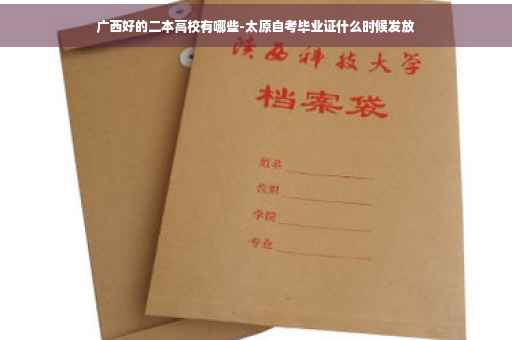 广西好的二本高校有哪些-太原自考毕业证什么时候发放
陕西科技大学
档案袋
姓名
学院
专业